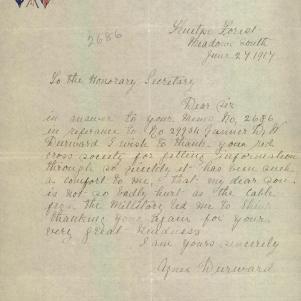 2686
Forest
Meadows South
June 27 1917
To the Honorary Secretary
Dear Sir
in answer to your Memo No. 2686
in reference to No 29934 Gunner W
Durward I wish to thank your red
cross society for getting information
through so quickly it has been such
a comfort to me, that my dear son
is not so badly hurt as the cable
from the Military led me to think
thanking you again for your
very great kindness
I am yours sincerely
Agnes Durward